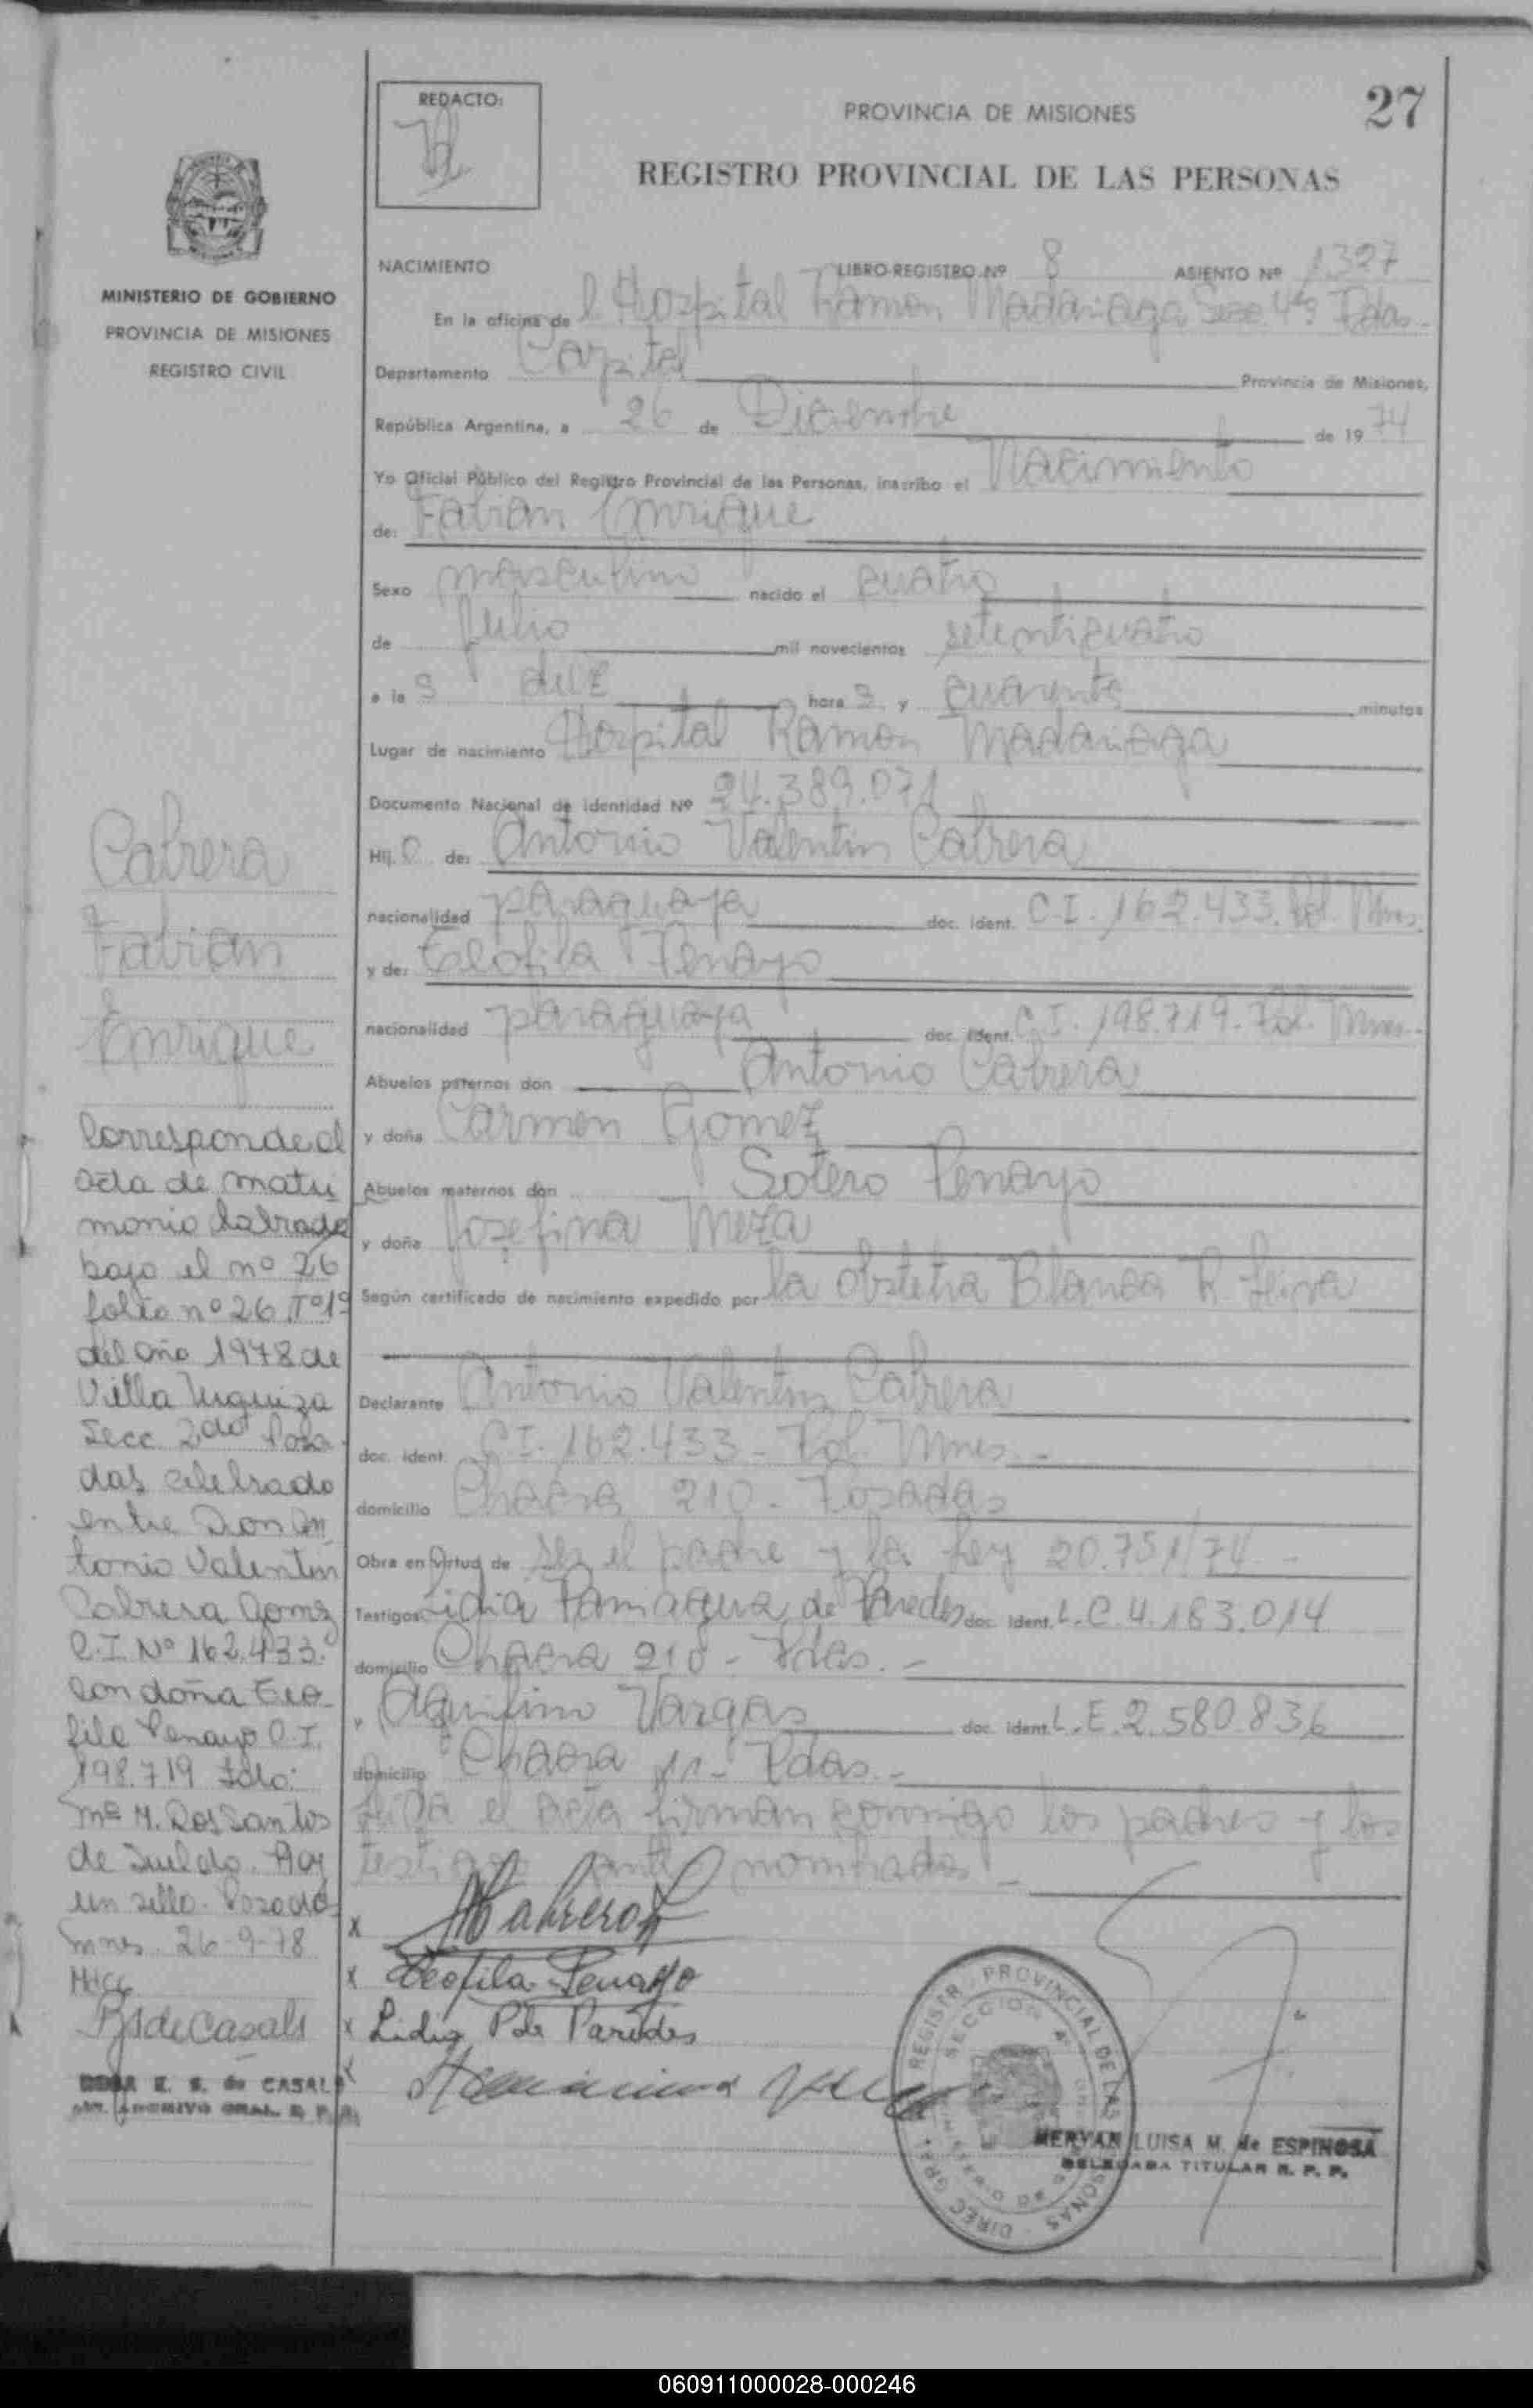 REDACTO:
PROVINCIA DE MISIONES
27
REGISTRO PROVINCIAL DE LAS PERSONAS
MINISTERIO DE GOBIERNO
PROVINCIA DE MISIONES
REGISTRO CIVIL
NACIMIENTO LIBRO REGISTRO Nº 8 ASIENTO Nº 1327
En la oficina del Hospital Ramon Madariaga Secc 4ta Pdas.-
Departamento Capital Provincia de Misiones,
República Argentina, a 26 de Diciembre de 1974
Yo Oficial Público del Registro Provincial de las Personas, inscribo el Nacimiento
de: Fabian Enrique
Sexo masculino nacido el cuatro
de Julio mil novecientos setenticuatro
a las diez horas y cuarenta minutos
Lugar de nacimiento Hospital Ramon Madariaga
Documento Nacional de identidad Nº 24.389.071
Hijo de: Antonio Valentin Cabrera
nacionalidad paraguaya doc. ident. C.I. 162.433. Pol. Mnes.
y de: Teofila Penayo
nacionalidad paraguaya doc. ident. C.I. 198.719. Pol. Mnes.-
Abuelos paternos don Antonio Cabrera
y doña Carmen Gomez
Abuelos maternos don Sotero Penayo
y doña Josefina Meza
Según certificado de nacimiento expedido por la obstetra Blanca R.
Declarante Antonio Valentin Cabrera
doc. ident. C.I. 162.433 - Pol. Mnes -
domicilio Chacra 210 - Posadas
Obra en virtud de ser el padre y la ley 20.751/74 -
Testigos Lidia de Paredes doc. ident. L.C. 4.183.014
domicilio Chacra 210 - Pdas. -
" Aquilino Vargas doc. ident. L.E. 2.580.836
domicilio Chacra Pdas. -
el acta firman conmigo los padres y los
testigos nombrados -
Cabrera
Fabian
Enrique
Corresponde al
acta de matri
monio labrado
bajo el nº 26
folio nº 26 Tº 1º
del año 1978 de
Villa Urquiza
Secc. 2da Posa
das celebrado
entre Don An
tonio Valentin
Cabrera Gomez
C.I. Nº 162.433.
con doña Teo
fila Penayo C.I.
198.719 Fdo:
Mª M. Dos Santos
de Sueldo. Hay
un sello. Posadas
Mnes. 26-9-78
BS de Casals
E. S. de CASALS
x Cabrera
x Teofila Penayo
x Lidia P de Paredes
x
DIREC. GRAL. REGISTR. PROVINCIAL DE LAS PERSONAS
SECCION 4ª
MERYAN LUISA M. de ESPINOSA
DELEGADA TITULAR R. P. P.
060911000028-000246